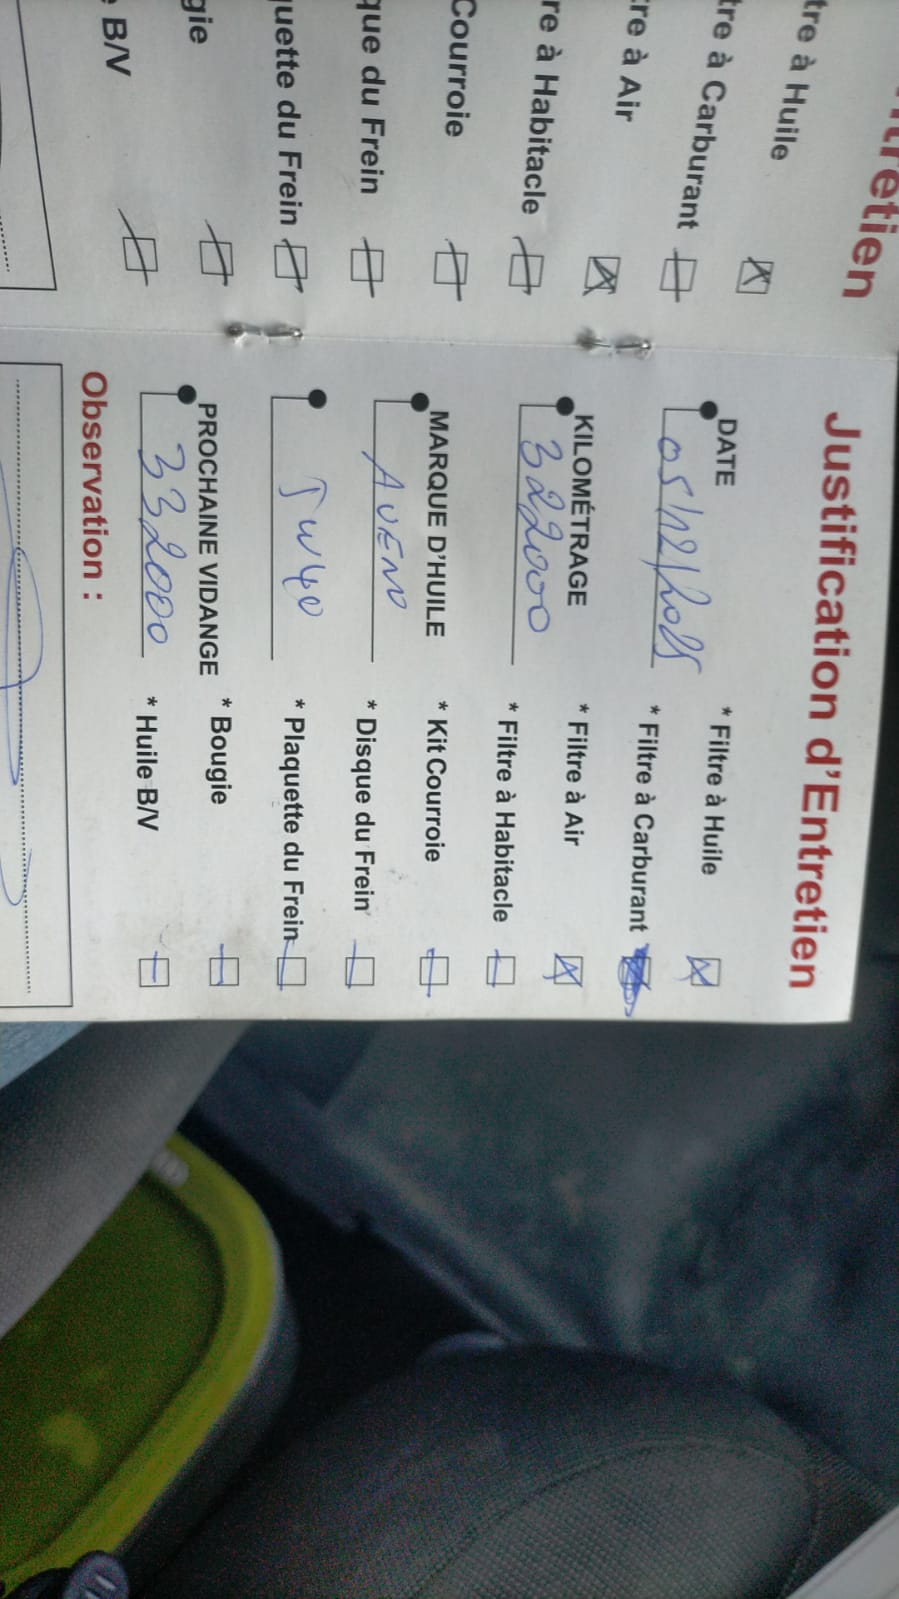 ntretien
tre à Huile
tre à Carburant
tre à Air
re à Habitacle
Courroie
que du Frein
uette du Frein
gie
B/V
Justification d'Entretien
DATE
05/12/2025
KILOMÉTRAGE
322000
MARQUE D'HUILE
AVENO
5W40
PROCHAINE VIDANGE
332000
* Filtre à Huile
* Filtre à Carburant
* Filtre à Air
* Filtre à Habitacle
* Kit Courroie
* Disque du Frein
* Plaquette du Frein
* Bougie
* Huile B/V
Observation :